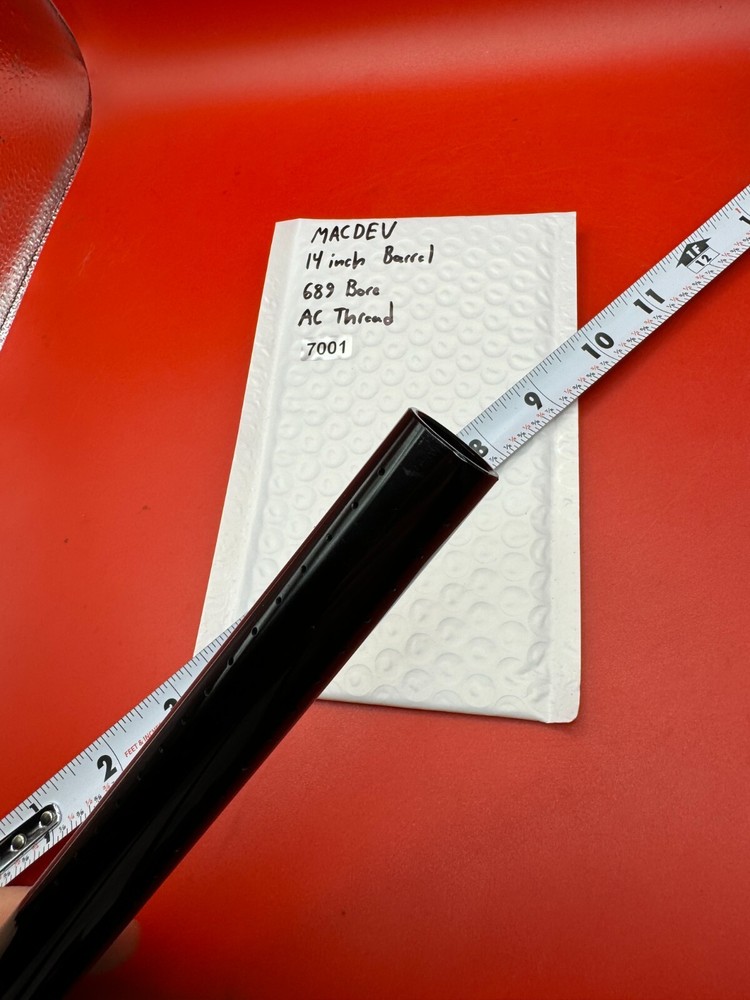 MACDEV
14 inch Barrel
689 Bore
AC Thread
7001
1F
12
11
10
9
8
3
2
1
FEET & INC